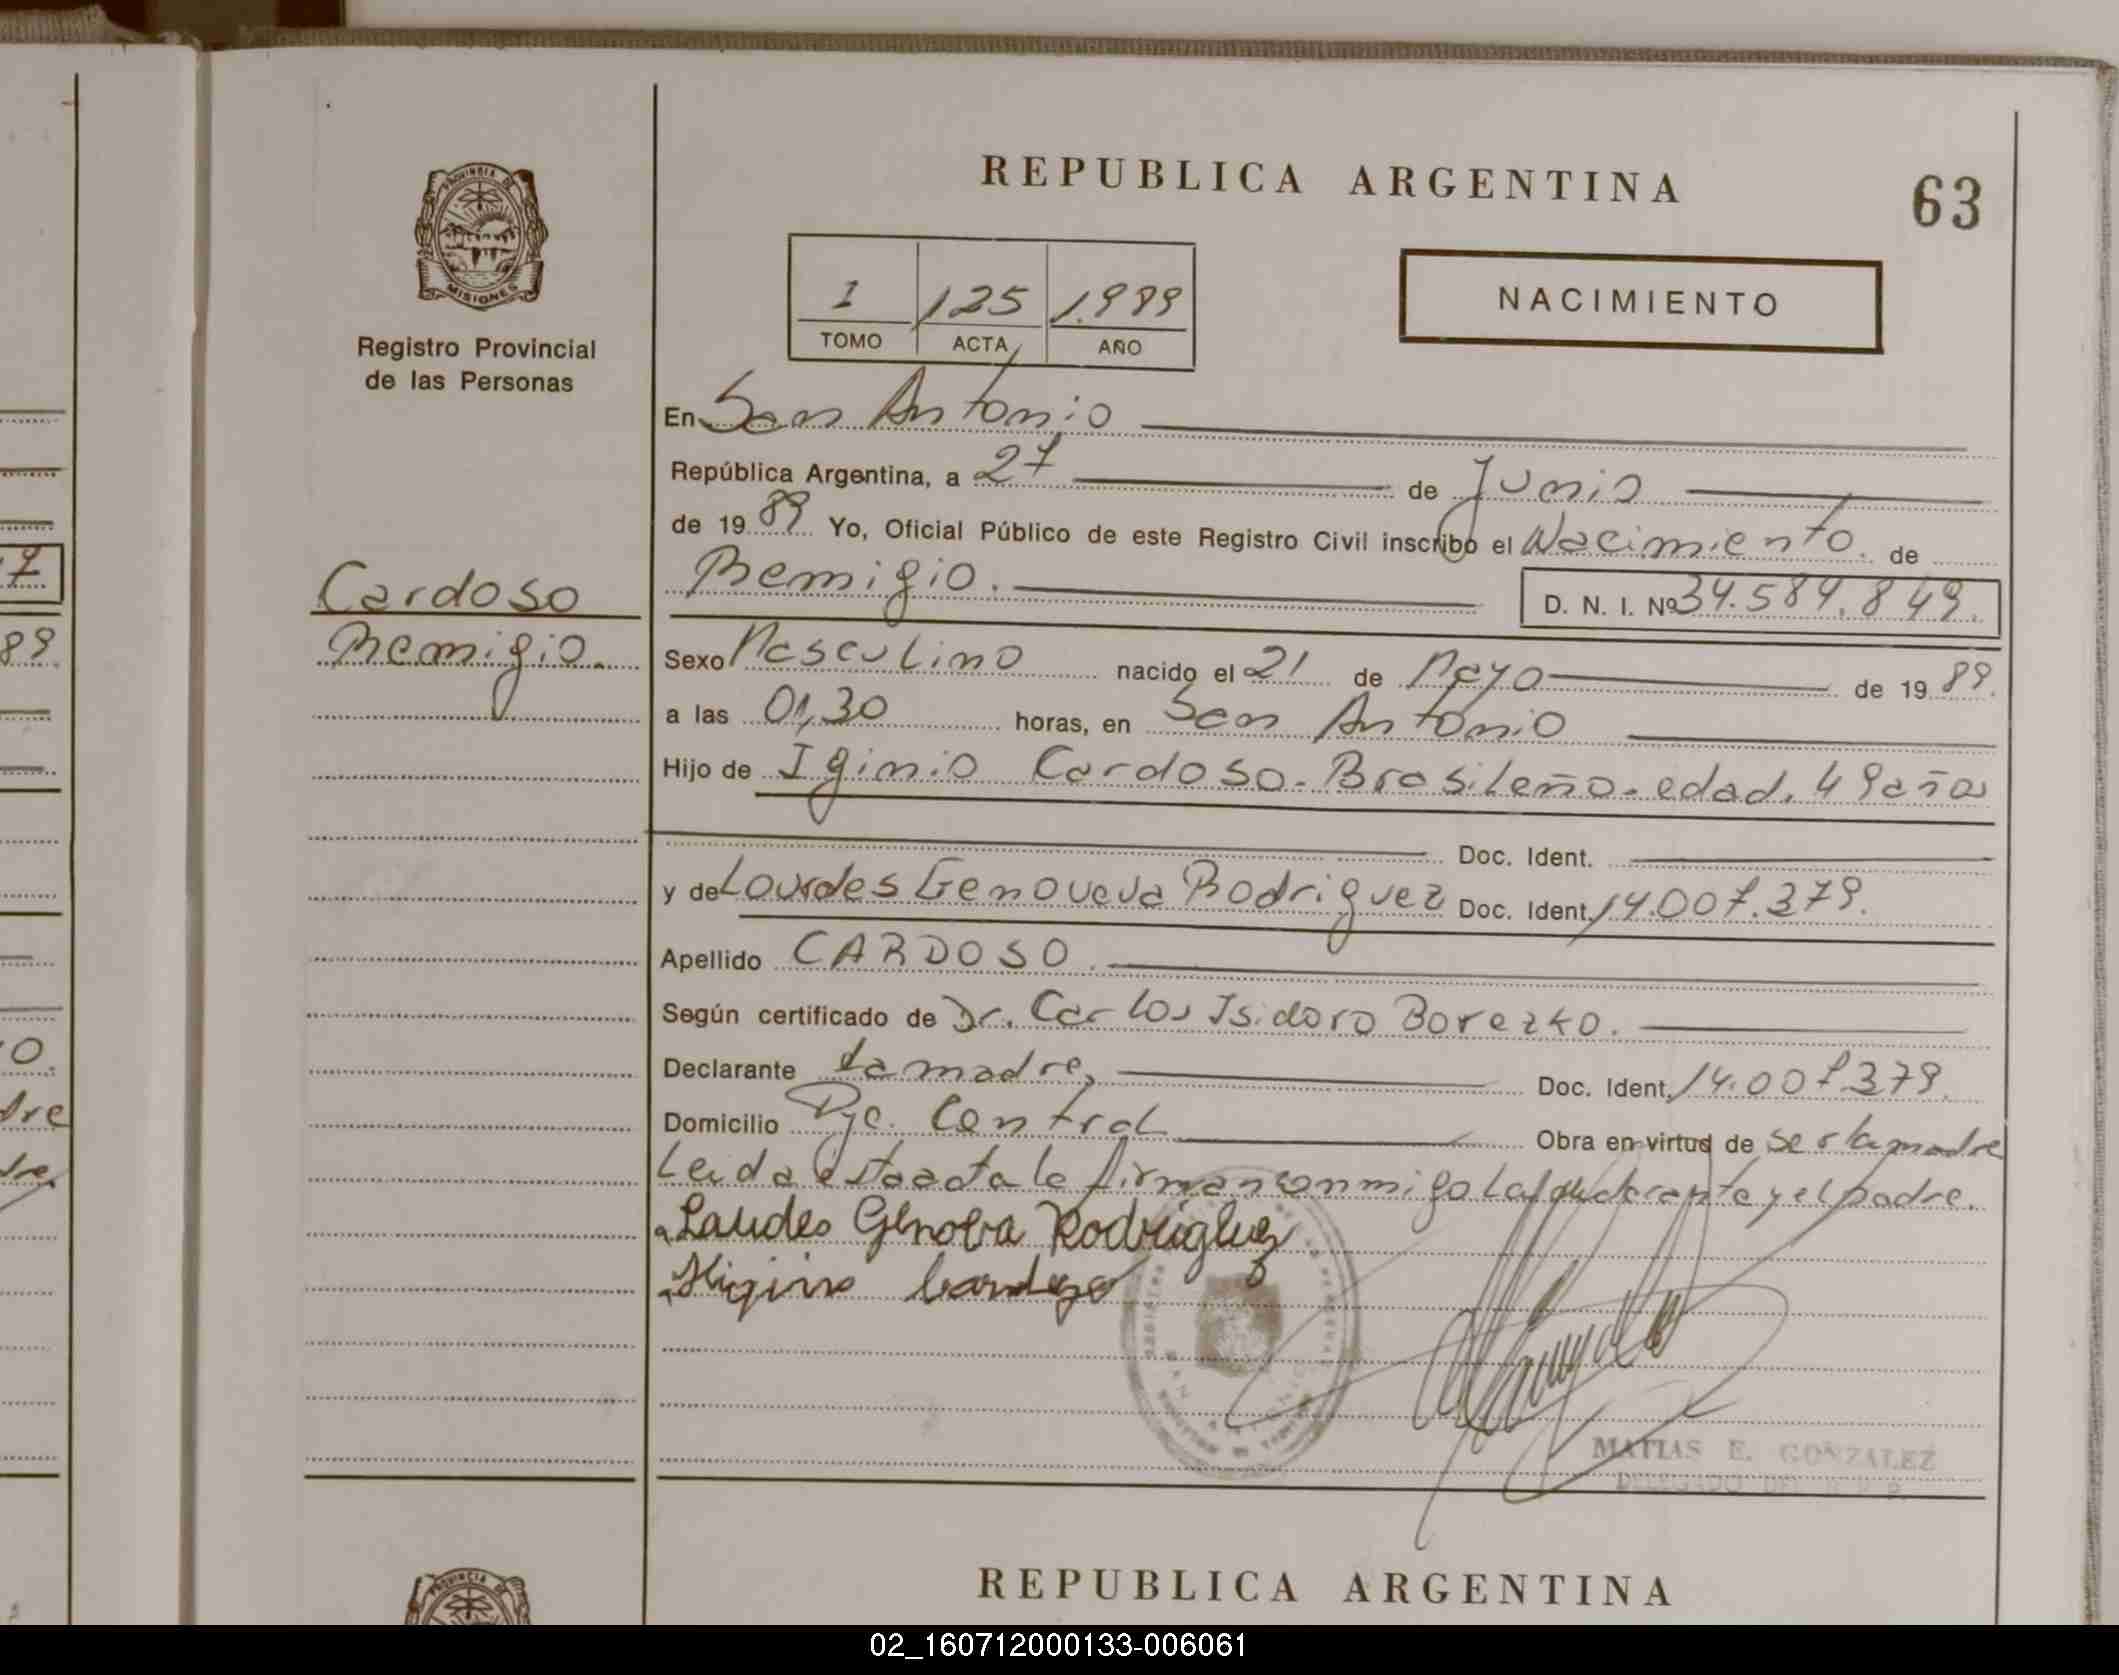 REPUBLICA ARGENTINA
63
PROVINCIA DE
MISIONES
Registro Provincial
de las Personas
1 125 1.989
TOMO ACTA AÑO
NACIMIENTO
En San Antonio
República Argentina, a 27 de Junio
de 19 89 Yo, Oficial Público de este Registro Civil inscribo el Nacimiento. de
Remigio. D. N. I. Nº 34.584.849.
Cardoso
Remigio.
Sexo Masculino nacido el 21 de Mayo de 19 89.
a las 01,30 horas, en San Antonio
Hijo de Iginio Cardoso. Brasileño. edad. 49 años
Doc. Ident.
y de Lourdes Genoveva Rodriguez Doc. Ident. 14.007.379.
Apellido CARDOSO.
Según certificado de Dr. Carlos Isidoro Borezko.
Declarante La madre, Doc. Ident. 14.007.379.
Domicilio Pje. Central Obra en virtud de ser la madre
Leida esta acta la firman conmigo La declarante y el padre.
Laudes Genoba Rodriguez
Higino Cardozo
MATIAS E. GONZALEZ
DELEGADO DEL R P P
REPUBLICA ARGENTINA
PROVINCIA DE
89.
0.
dre
dre
02_160712000133-006061